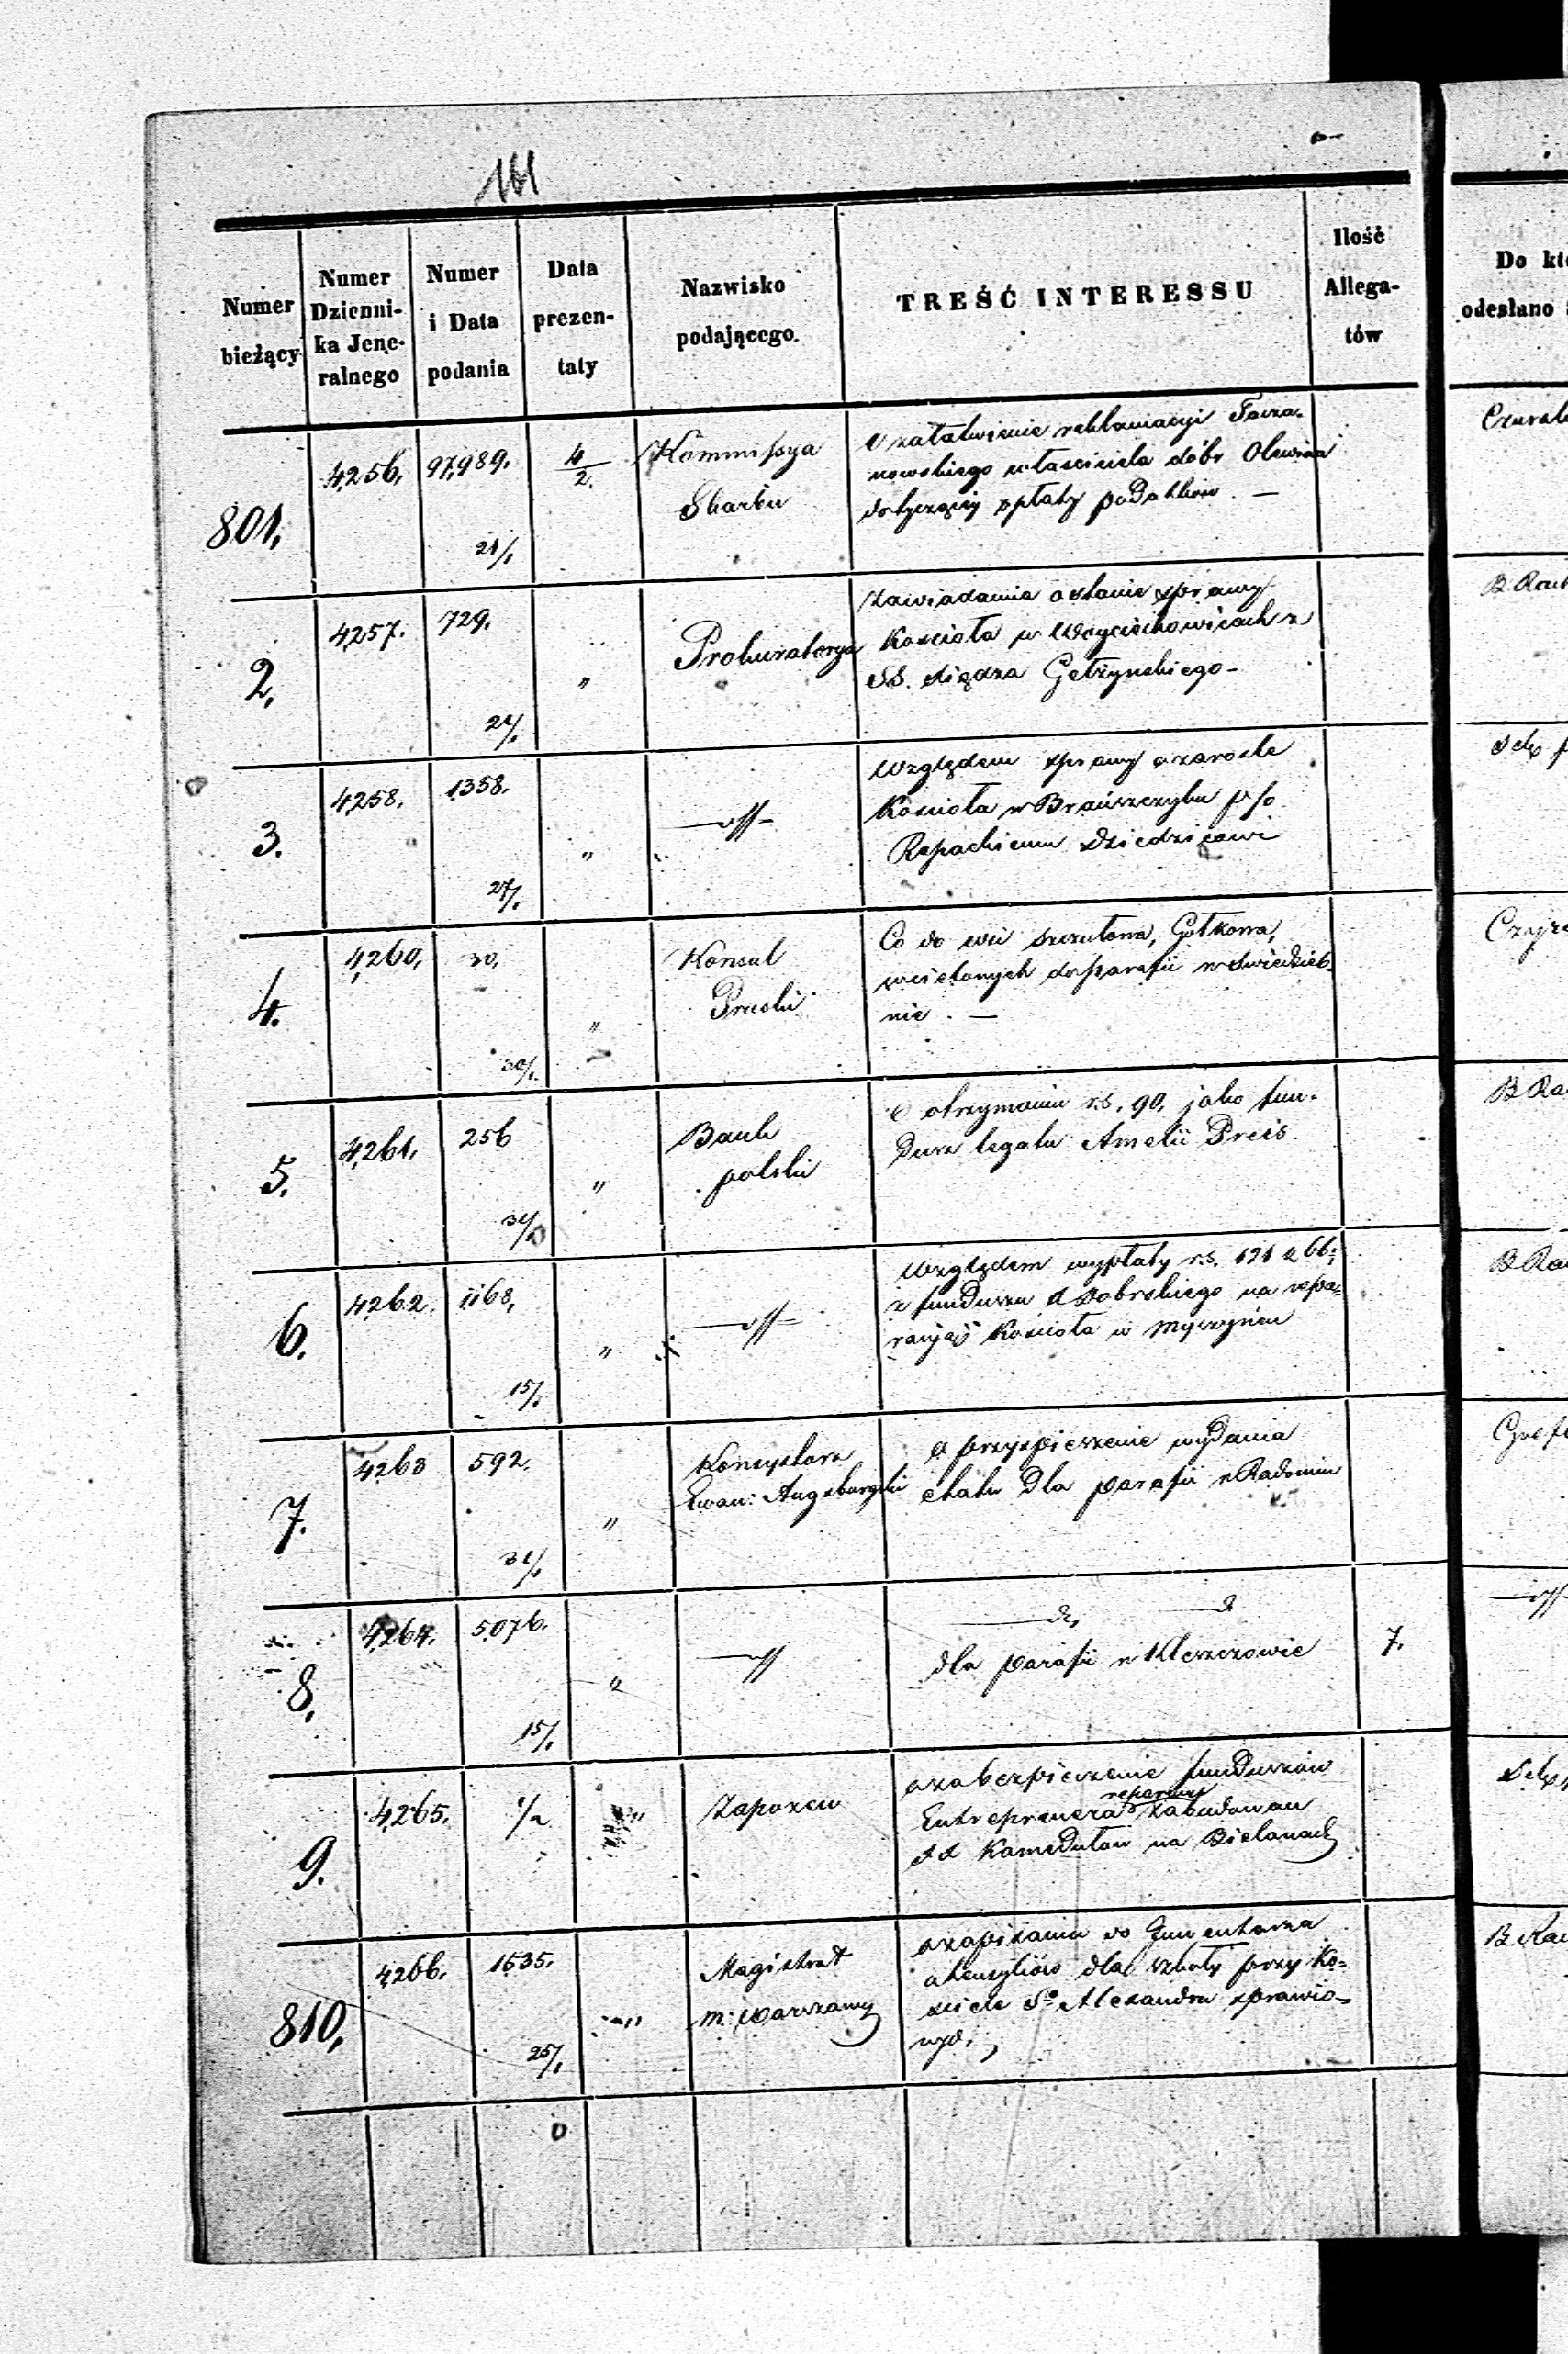 101
Numer bieżący
Numer Dzienni-ka Jene-ralnego
Numer i Data podania
Data prezen-taty
Nazwisko podającego.
TREŚĆ INTERESSU
Ilość Allega-tów
Do
odesłano
801. 4256. 97,989. 21/1 4/2 Kommissya Skarbu
O załatwienie reklamacyi Tacza-
nowskiego właściciela dóbr
dotyczącej opłaty podatków. —
2. 4257. 729. 21/1 " Prokuratorya
Zawiadamia o stanie sprawy
Kościoła w Woyciechowicach z
SS. księdza
B.
3. 4258. 1358. 27/1 "
Względem sprawy o zarosle
Kościoła w Brańszczyku p/o
Dziedzicowi
4. 4260. 30. 30/1 " Konsul Pruski
Co do wsi Szczutowa, Gutkowa,
wcielonych do parafii w Swiedzieb-
nie. —
5. 4261. 256 31/1 " Bank polski
O otrzymaniu r.s. 90. jako fun-
dusz legatu Amelii Preis.
B
6. 4262. 1168. 15/1 "
Względem wypłaty r.s. 121 k 66.
z funduszu X Dobrskiego na repa-
racyą Kościoła w Myszyńcu
B
7. 4263 592. 31/1 " Konsystorz Ewan: Augsburgski
o przyspieszenie wydania
etatu dla parafii w Radomiu
8. 4264. 5076. 15/1 "
dla parafii w Kleszczowie 7.
9. 4265. 1/2 " Zaporzew
o zabezpieczenie funduszów
Entreprenera reparacyi Zabudowań
XX Kamedułow na Bielanach
810. 4266. 1535. 25/1 " Magistrat m: Warszawy
o zapisaniu do Inwentarza
utensyliów dla szkoły przy Ko-
sciele Sgo Alexandra sprawio-
nych.
B.